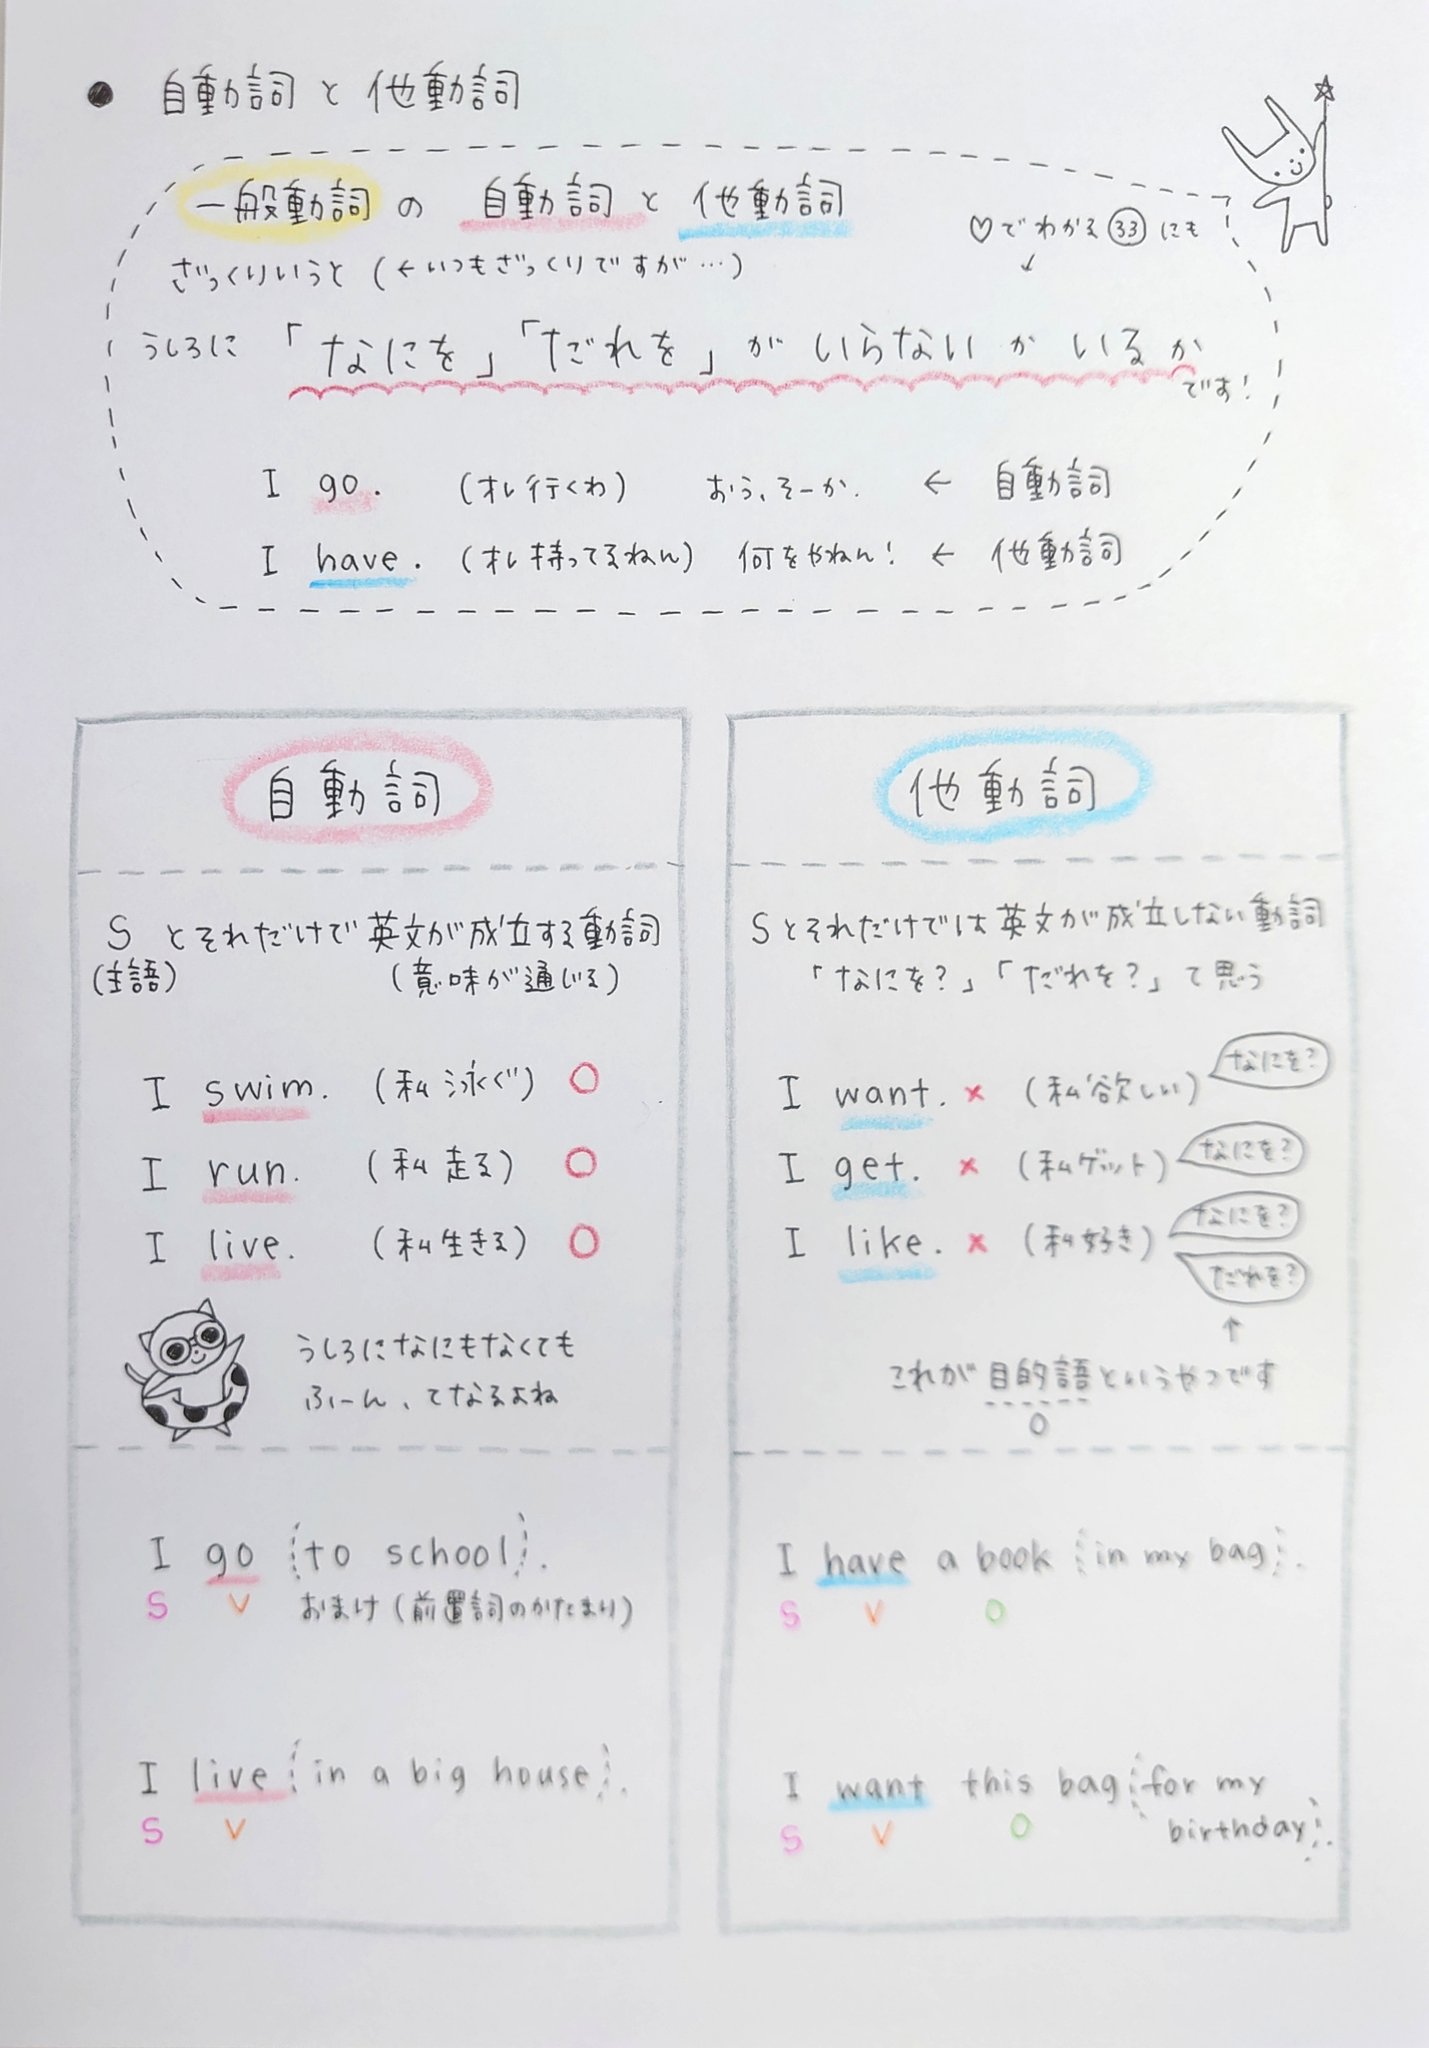 ● 自動詞と他動詞
一般動詞の 自動詞と他動詞
♡でわかる㉝にも
ざっくりいうと(←いつもざっくりですが…)
うしろに「なにを」「だれを」がいらないかいるか
です!
I go. (オレ行くわ) おう、そーか. ← 自動詞
I have. (オレ持ってるねん) 何をやねん! ← 他動詞
自動詞
Sとそれだけで英文が成立する動詞
(主語) (意味が通じる)
I swim. (私泳ぐ) ○
I run. (私走る) ○
I live. (私生きる) ○
うしろになにもなくても
ふーん、てなるよね
I go to school.
S V おまけ(前置詞のかたまり)
I live in a big house.
S V
他動詞
Sとそれだけでは英文が成立しない動詞
「なにを?」「だれを?」て思う
I want. × (私欲しい) なにを?
I get. × (私ゲット) なにを?
I like. × (私好き) なにを?
だれを?
↑
これが目的語というやつです
O
I have a book in my bag.
S V O
I want this bag for my
birthday.
S V O